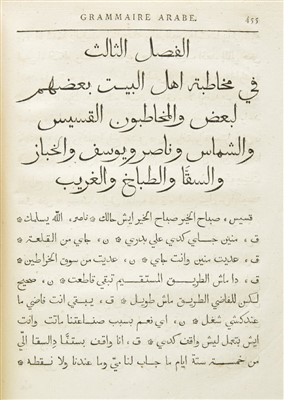 GRAMMAIRE ARABE. 455
الفصل الثالث
في مخاطبة اهل البيت بعضهم
لبعض والمخاطبون القسيس
والشماس وناصر ويوسف والخباز
والسقا والطباخ والغريب
قسيس، صباح الخير صباح الخير ايش حالك * ناصر، الله يسلمك *
ق، منين جاي كدي علي بدري * ن، جاي من القلعة *
ق، عديت منين وانت جاي * ن، عديت من سوق الخراطين *
ق، دا ماش الطريق المستقيم تبقي قاطعت * ن، صحيح
لكن للقاضي الطريق ماش طويل * ق، يبقي انت فاضي ما
عندكشي شغل * ن، اي نعم بسبب صناعتنا ماتت وانت
ايش بتعمل ليش واقف كدي * ق، انا واقف بستنا السقا الي
من خمسة ستة ايام ما جاب لنا مي وما عندنا ولا نقطة *